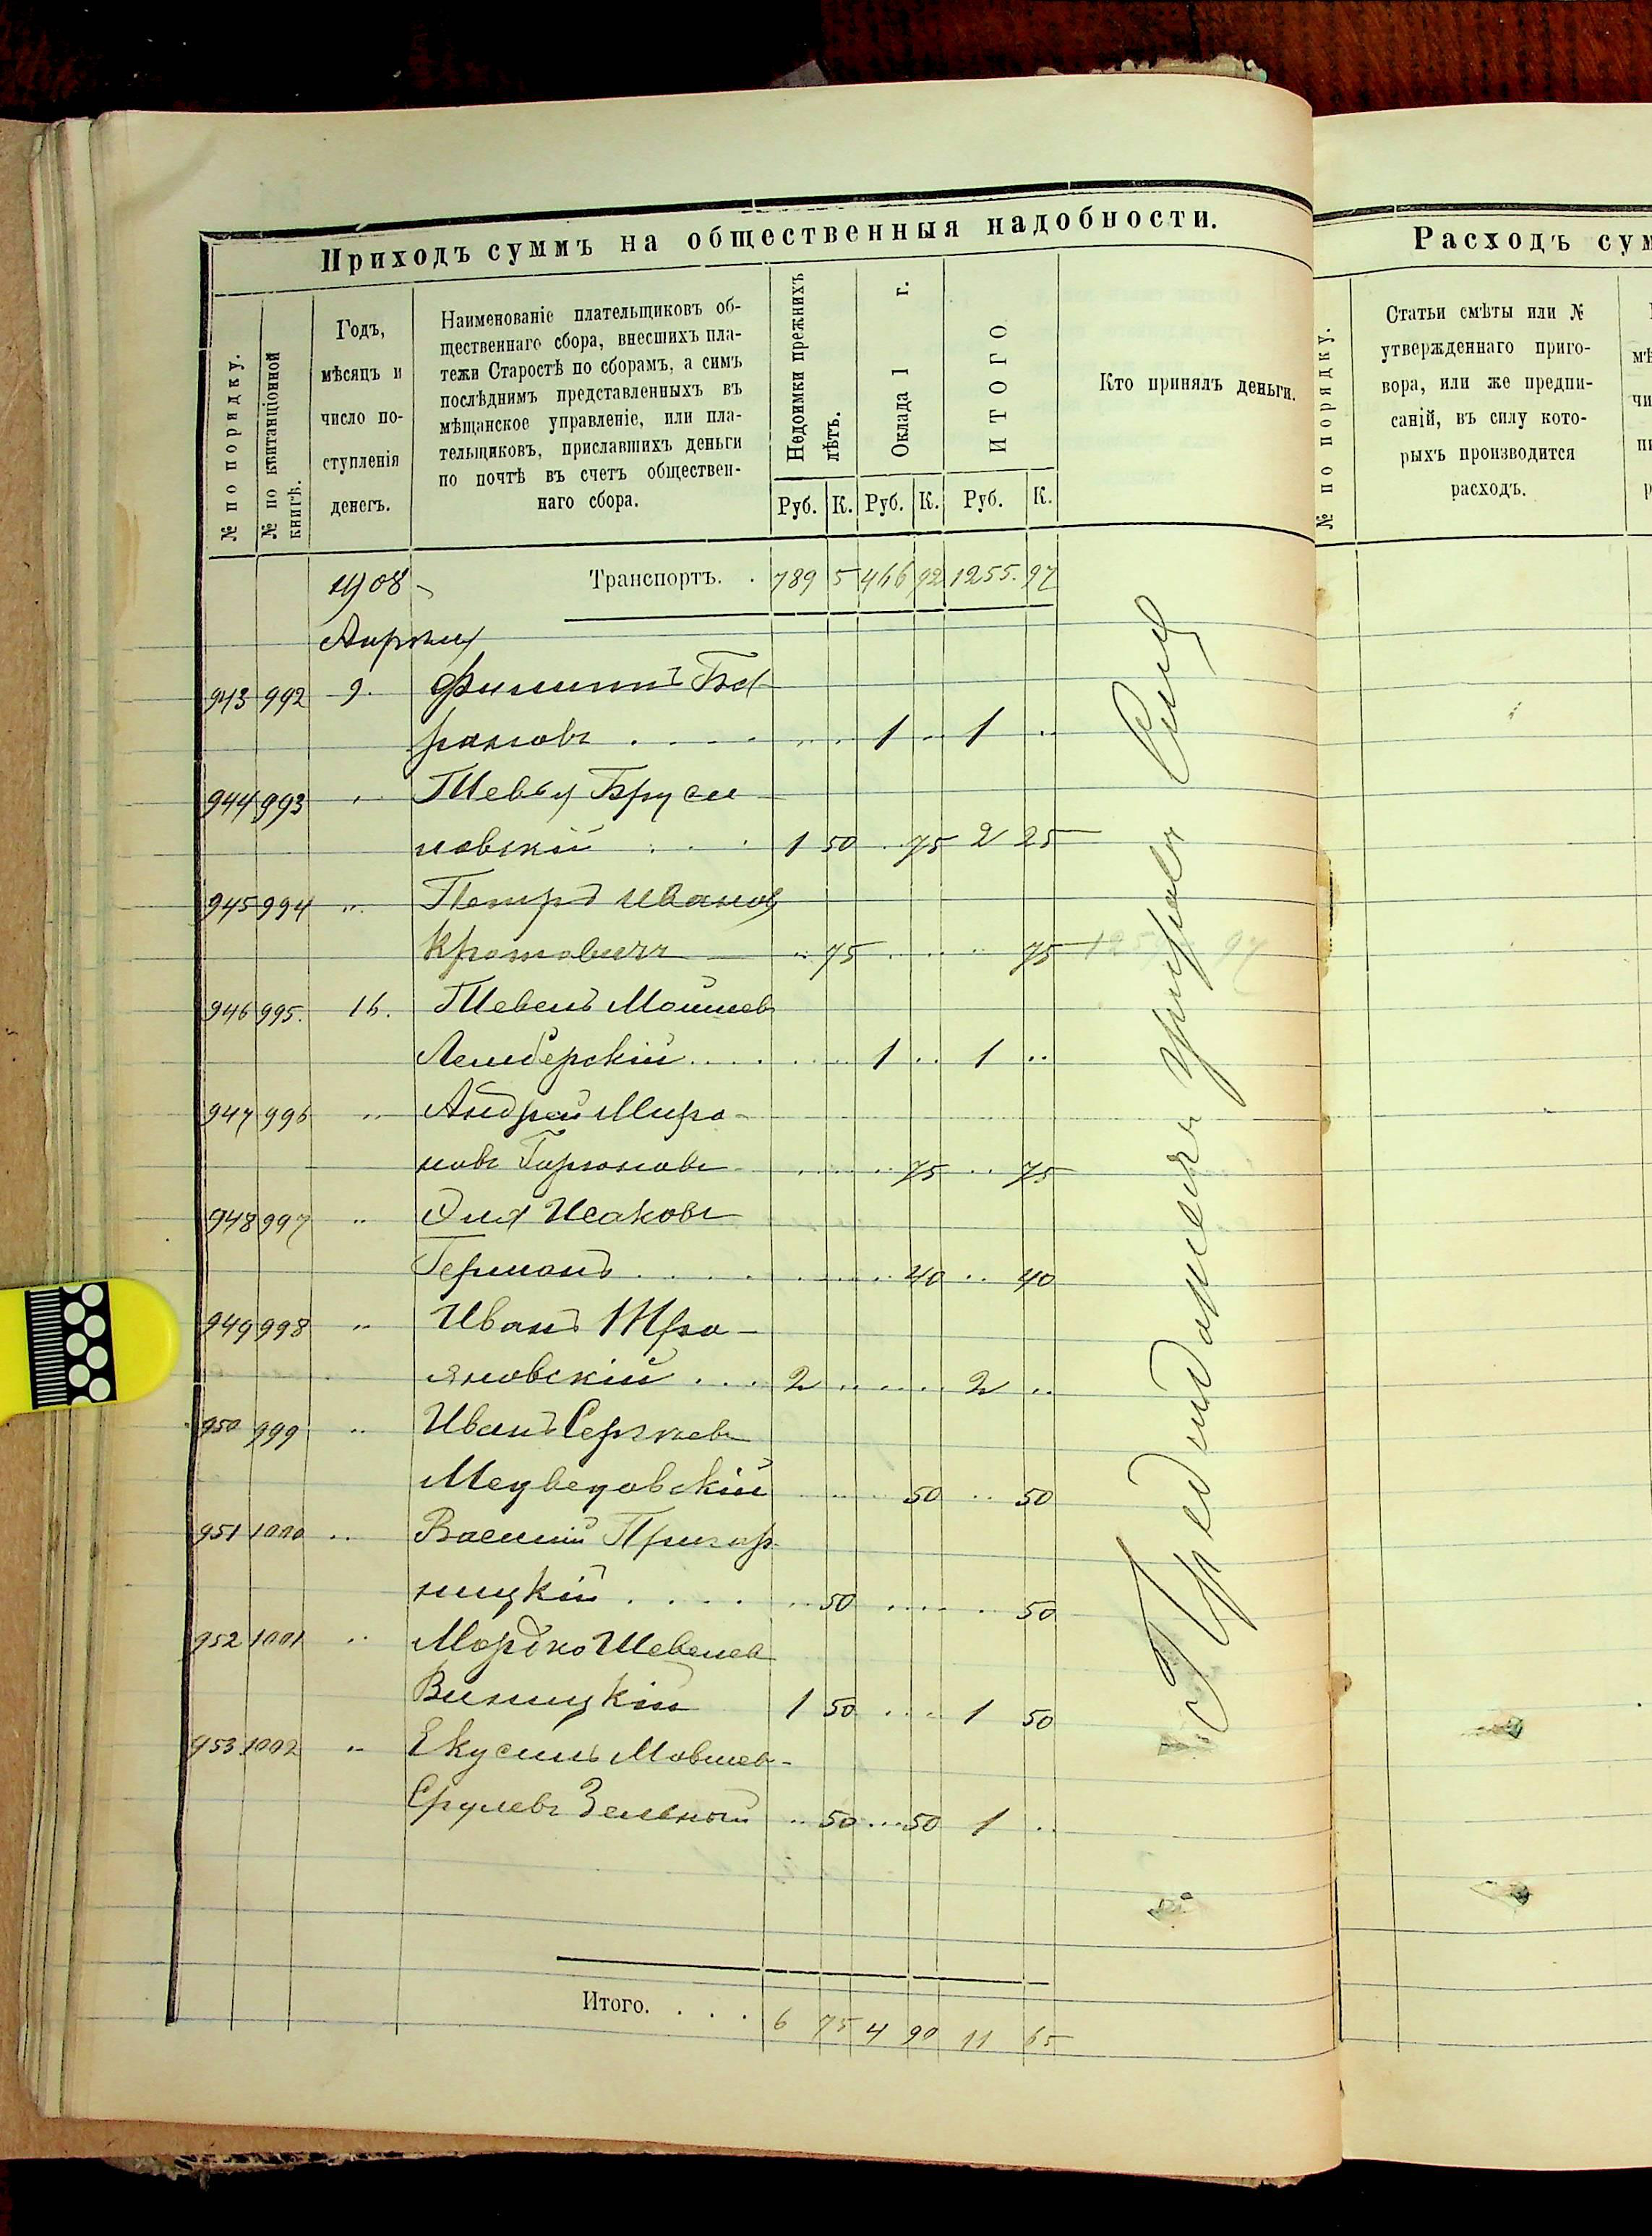 Приходъ суммъ на общественныя надобности.
№ по порядку.
№ по квитанціонной книгѣ.
Годъ,
мѣсяцъ и
число по-
ступленія
денегъ.
Наименованіе плательщиковъ об-
щественнаго сбора, внесшихъ пла-
тежи Старостѣ по сборамъ, а симъ
послѣднимъ представленныхъ въ
мѣщанское управленіе, или пла-
тельщиковъ, приславшихъ деньги
по почтѣ въ счетъ обществен-
наго сбора.
Недоимки прежнихъ лѣтъ.
Оклада 1 г.
ИТОГО
Кто принялъ деньги.
Руб. К. Руб. К. Руб. К.
1908 Транспортъ. . 789 5 466 92 1255. 97
Апрѣля
943 992 9. Филиппъ
1 .. 1 ..
944 993 " Тевья Бруси
ловскій . . . 1 50 .. 75 2 25
945 994 " Петръ Иванов
Кротовичъ .. 75 .... .. 75
946 995. 16. Шевель Мошков
Лемберскій .... .. .. 1 .. 1 ..
947 996 " Андрей Миро-
новъ Горюновъ .. .. .. 75 .. 75
948 997 " Эля Исаковъ
Германъ . . . . .. .. .. 40 .. 40
949 998 " Иванъ Тро-
яновскій . . . 2 .. .. .. 2 ..
950 999 " Иванъ Сергѣевъ
Медведовскій .. .. .. 50 .. 50
951 1000 " Василій
ницкій . . . . .. 50 .. .. . 50
952 1001 " Мордко Шевелев
Виницкій 1 50 .. .. 1 50
953 1002 " Екусиль Мовшев-
Срулевъ Зеленый .. 50 .. 50 1 ..
Итого. . . . 6 75 4 90 11 65
Расходъ сум
№ по порядку.
Статьи смѣты или №
утвержденнаго приго-
вора, или же предпи-
саній, въ силу кото-
рыхъ производится
расходъ.